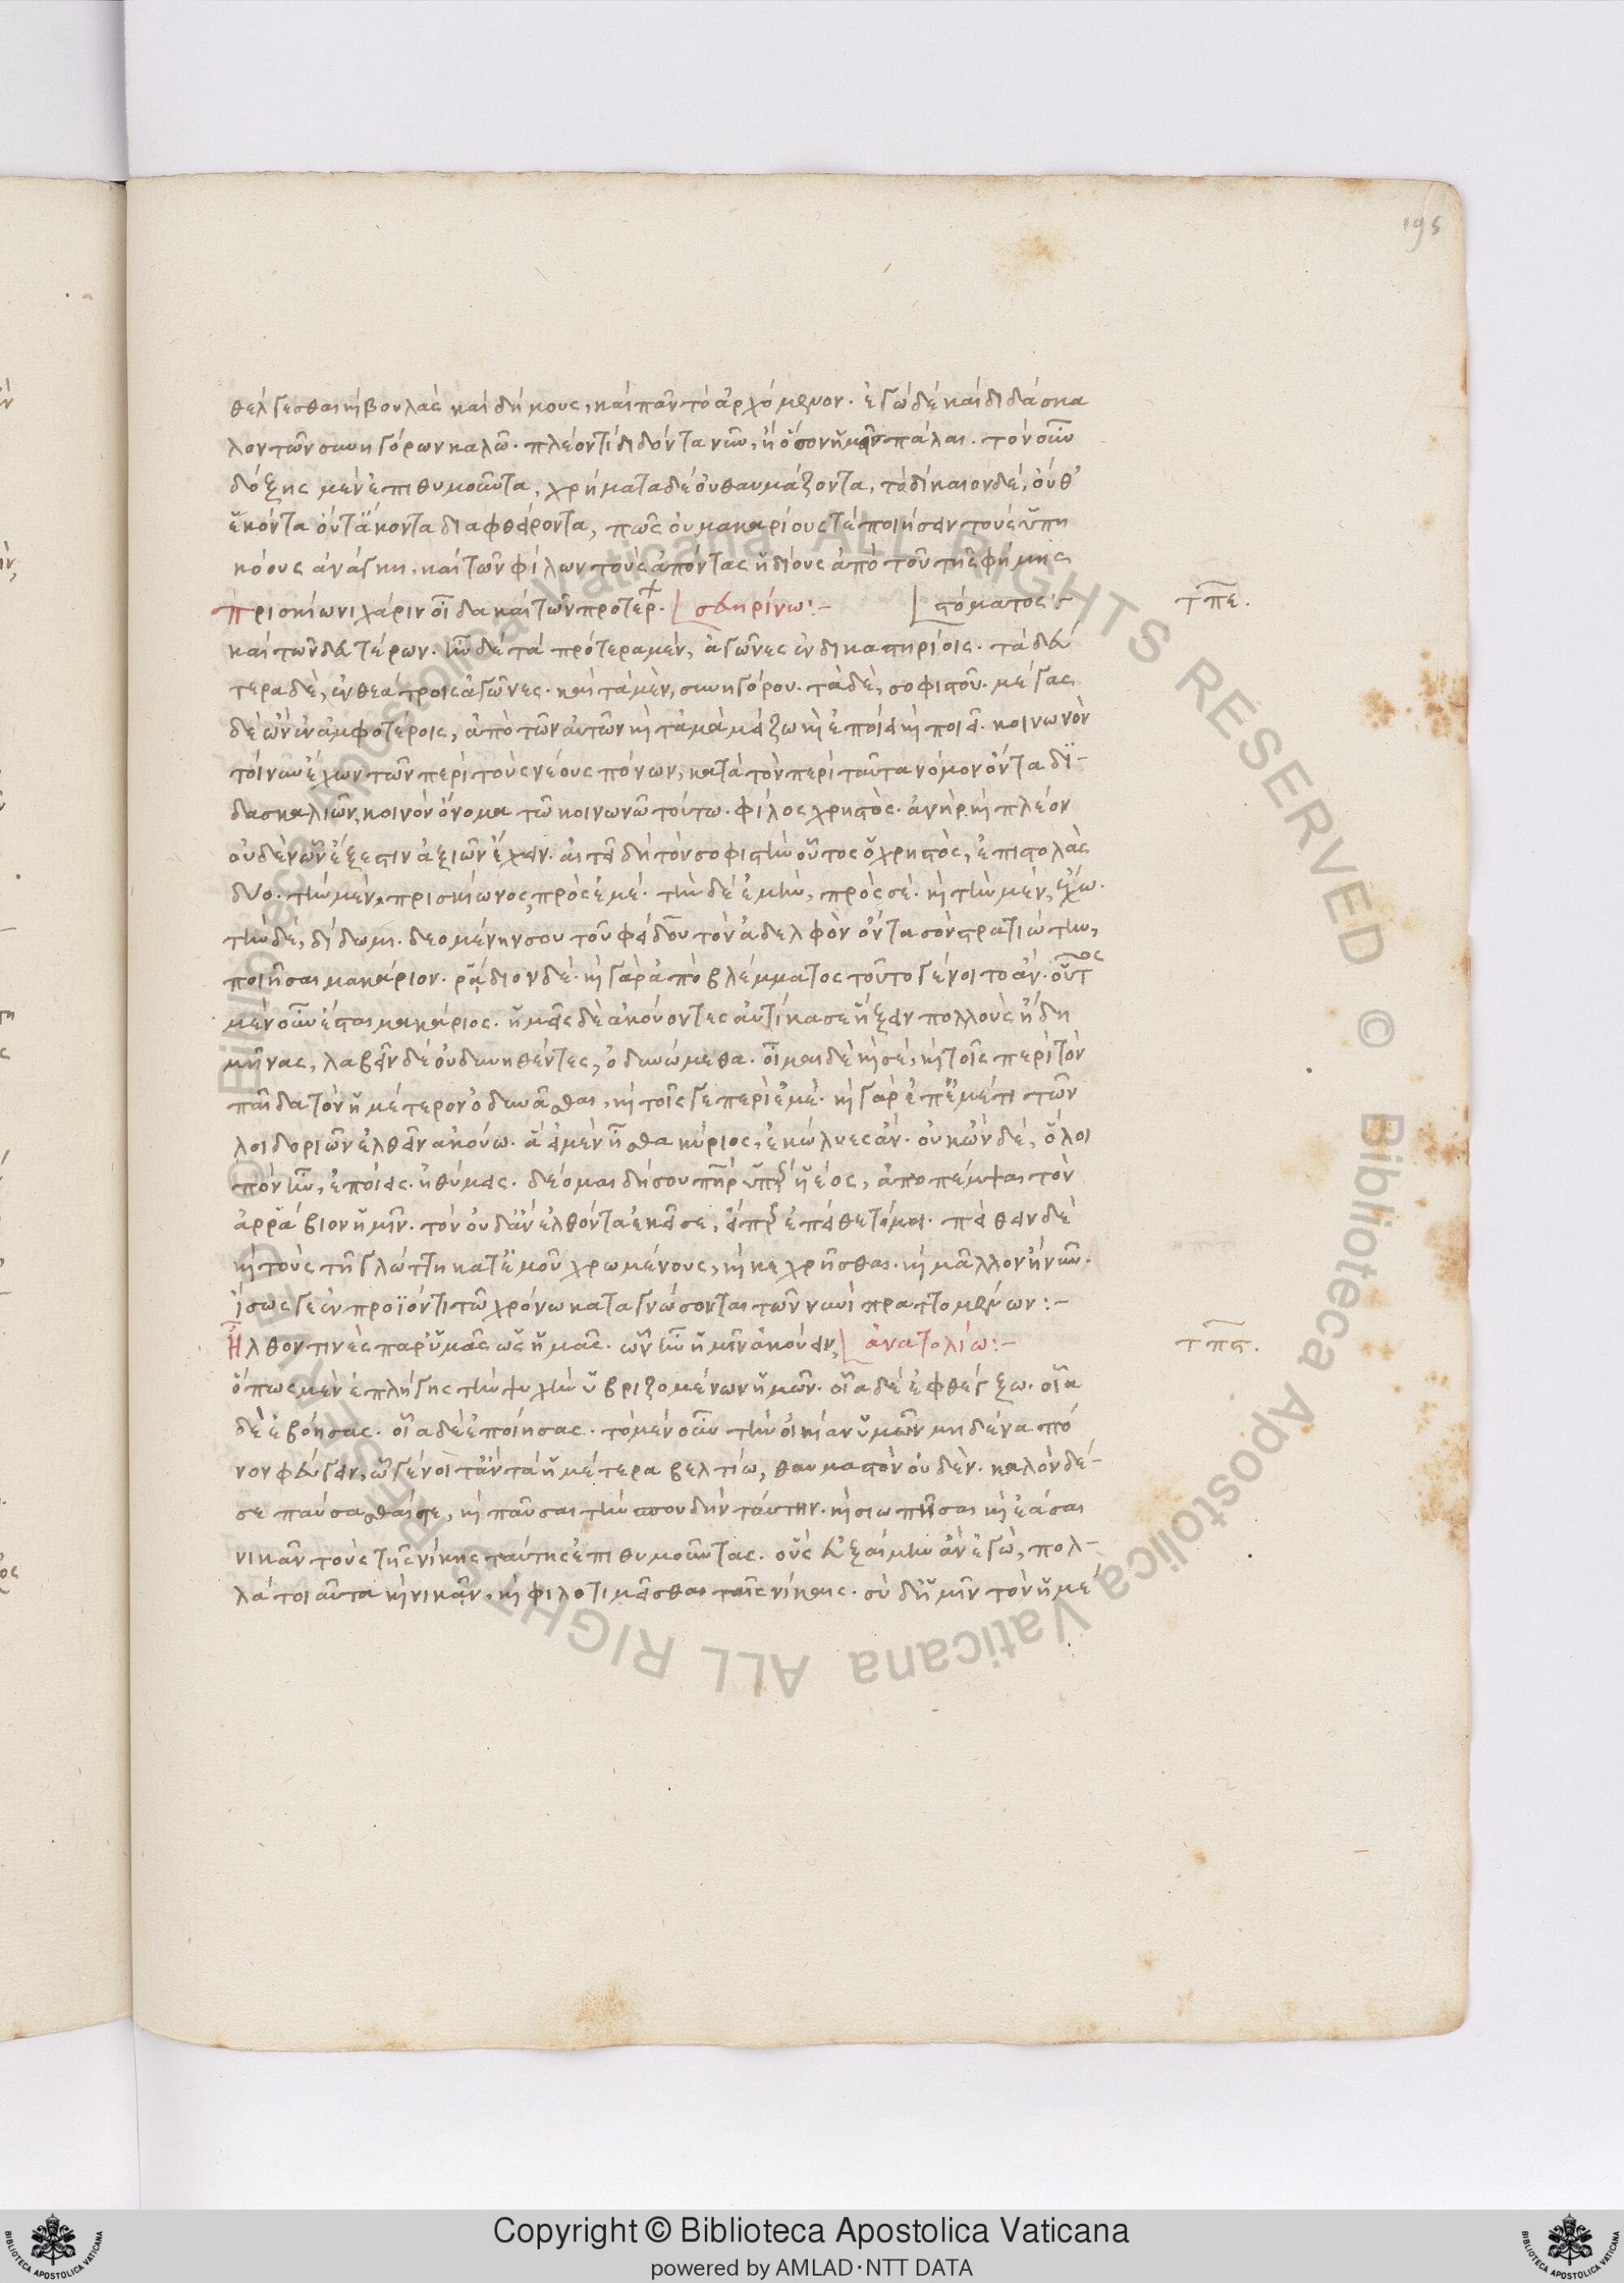 195
θέλγεσθαι κ̀ βουλὰς καὶ δήμους, καὶ πᾶν τὸ ἀρχόμενον. ἐγὼ δὲ καὶ διδάσκα
λον τῶν συνηγόρων καλῶ. πλέον τι διδόντα νῦν, ἢ ὅσον ἡμῖν πάλαι. τὸν οὖν
δόξης μὲν ἐπιθυμοῦντα, χρήματα δὲ οὐ θαυμάζοντα, τὸ δίκαιον δέ, οὔθ'
ἑκόντα οὔτ' ἄκοντα διαφθείροντα, πῶς οὐ μακαρίους τε ποιήσειν τοὺς ὑπη
κόους ἀνάγκη. καὶ τῶν φίλων τοὺς ἀπόντας ἡδίους ἀπὸ τοῦ τῆς φήμης
Πρισκίωνι χάριν οἶδα καὶ τῶν προτέρ. σευηρίνω:- στόματος:- τπε.
καὶ τῶν δευτέρων. ἦν δὲ τὰ πρότερα μέν, ἀγῶνες ἐν δικαστηρίοις. τὰ δεύ
τερα δὲ, ἐν θεάτροις ἀγῶνες. καὶ τὰ μὲν, συνηγόρου. τὰ δὲ, σοφιστοῦ. μέγας
δὲ ὢν ἐν ἀμφοτέροις, ἀπὸ τῶν αὐτῶν κ̀ τἀμὰ μείζω κ̀ ἐποίει κ̀ ποιεῖ. κοινωνὸν
τοίνυν ἔχων τῶν περὶ τοὺς νέους πόνων, κατὰ τὸν περὶ ταῦτα νόμον ὄντα δι-
δασκαλιῶν, κοινὸν ὄνομα τῶ κοινωνῶ τούτω. φίλος χρηστός. ἀνὴρ κ̀ πλέον
οὐδὲν ὧν ἔξεστιν ἀξιῶν ἔχειν. αἰτεῖ δὴ τὸν σοφιστὴν οὗτος ὁ χρηστὸς, ἐπιστολὰς
δύο. τὴν μὲν, πρισκίωνος, πρὸς ἐμέ. τὴν δὲ ἐμὴν, πρὸς σέ. κ̀ τὴν μέν, ἔχω.
τὴν δέ, δίδωμι. δεομένην σου τοῦ φείδου τὸν ἀδελφὸν ὄντα σὸν στρατιώτην,
ποιῆσαι μακάριον. ῥάδιον δέ. κ̀ γὰρ ἀπὸ βλέμματος τοῦτο γένοιτο ἄν. οὗτος
μὲν οὖν ἔσται μακάριος. ἡμᾶς δὲ ἀκούοντες αὐτίκα σε ἥξειν πολλοὺς ἤδη
μῆνας, λαβεῖν δὲ οὐ δυνηθέντες, ὀδυνώμεθα. οἶμαι δὲ κ̀ σέ, κ̀ τοῖς περὶ τὸν
παῖδα τὸν ἡμέτερον ὀδυνᾶσθαι, κ̀ τοῖς γε περὶ ἐμέ. κ̀ γὰρ ἐπ' ἐμέ τι τῶν
λοιδοριῶν ἐλθεῖν ἀκούω. ἃ εἰ μὲν ἦσθα κύριος, ἐκώλυες ἄν. οὐκ ὢν δέ, ὅ λοι
πὸν ἦν, ἐποίεις. ἠθύμεις. δέομαι δή σου πηρ ὑπὲρ υἱέος, ἀποπέμψαι τὸν
ἀρράβιον ἡμῖν. τὸν οὐδ' ἂν ἐλθόντα ἐκεῖσε, εἴπερ ἐπείθετό μοι. πείθειν δὲ
κ̀ τοὺς τῆ γλώττη κατ' ἐμοῦ χρωμένους, κ̀ κεχρῆσθαι. κ̀ μᾶλλον ἢ νῦν.
ἴσως γε ἐν προϊόντι τῶ χρόνω καταγνώσονται τῶν νυνὶ πραττομένων:-
Ἦλθόν τινες παρ' ὑμᾶς ὡς ἡμᾶς. ὧν ἦν ἡμῖν ἀκούειν, ἀνατολίω:- τπς.
ὅπως μὲν ἐπλήγης τὴν ψυχὴν ὑβριζομένων ἡμῶν. οἷα δὲ ἐφθέγξω. οἷα
δὲ ἐβόησας. οἷα δὲ ἐποίησας. τὸ μὲν οὖν τὴν οἰκίαν ὑμῶν μηδένα πό
νον φεύγειν, ὧ γένοιτ' ἂν τὰ ἡμέτερα βελτίω, θαυμαστὸν οὐδέν. καλὸν δέ-
σε παύσασθαί τε, κ̀ παῦσαι τὴν σπουδὴν ταύτην. κ̀ σιωπῆσαι κ̀ ἐάσαι
νικᾶν τοὺς τῆς νίκης ταύτης ἐπιθυμοῦντας. οὓς δεξαίμην ἂν ἐγὼ, πολ-
λὰ τοιαῦτα κ̀ νικᾶν. κ̀ φιλοτιμεῖσθαι ταῖς νίκαις. σὺ δ' ἡμῖν τὸν ἡμέ
Copyright © Biblioteca Apostolica Vaticana
powered by AMLAD・NTT DATA